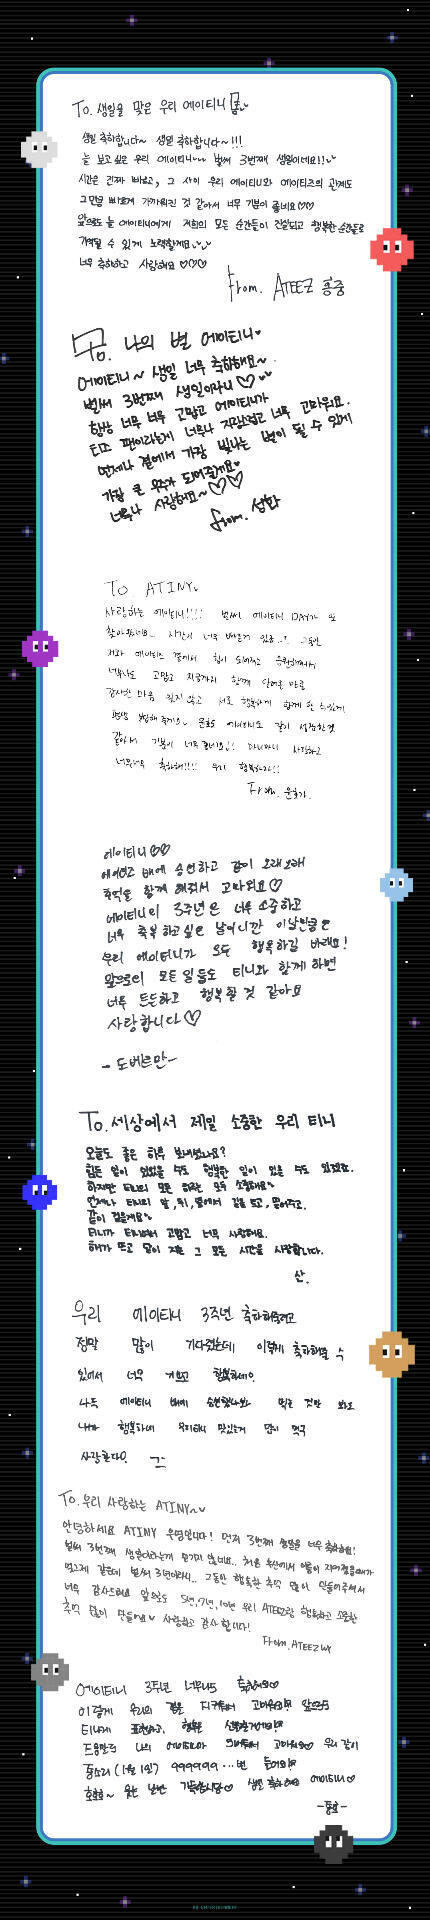 To. 생일을 맞은 우리 에이티니
생일 축하합니다~ 생일 축하합니다~!!!
늘 보고싶은 우리 에이티니~~ 벌써 3번째 생일이네요!!
시간은 진짜 빠르고, 그 사이 우리 에이티니와 에이티즈의 관계도
그만큼 빠르게 가까워진 것 같아서 너무 기분이 좋네요♡♡
앞으로도 늘 에이티니에게 저희의 모든 순간들이 진심되고 행복한 순간들로
기억될 수 있게 노력할게요
너무 축하하고 사랑해요 ♡♡♡
from. ATEEZ 홍중
To. 나의 별 에이티니♥
에이티니~ 생일 너무 축하해요~
벌써 3번째 생일이라니♡
항상 너무 너무 고맙고 에이티니가
티즈 팬이라는게 너무나 자랑스럽고 너무 고마워요.
언제나 곁에서 가장 빛나는 별이 될 수 있게
가장 큰 우주가 되어줄게요♥
너무나 사랑해요~♡♡
from. 성화
To ATINY
사랑하는 에이티니!!!! 벌써 에이티니 DAY가 또
찾아왔네요.. 시간이 너무 빠른거 있죠..? 그동안
저와 에이티즈 곁에서 힘이 되어주고 응원해줘서
너무나도 고맙고 지금까지 함께 걸어온 만큼
감사한 마음 잊지 않고 서로 행복하게 함께
에이티니도 같이 성장한것
같아서 기분이 너무 좋네요!! 마니마니 사랑하고
너무너무 축하해!!!! 우리 행복하자!!
From. 윤호가.
에이티니♡♡
에이티즈 배에 승선하고 같이 오래오래
추억을 함께 해줘서 고마워요♡
에이티니의 3주년은 너무 소중하고
너무 축복하고싶은 날이니깐 이날만큼은
우리 에이티니가 모두 행복하길 바래요!
앞으로의 모든 일들도 티니와 함께 하면
너무 든든하고 행복할 것 같아요
사랑합니다♡
-도베르만-
To. 세상에서 제일 소중한 우리 티니
오늘도 좋은 하루 보내셨나요?
힘든 일이 있었을 수도 행복한 일이 있을 수도 있겠죠.
하지만 티니의 모든 하루는 모두 소중해요~
언제나 티니의 앞, 뒤, 옆에서 길을 트고, 밀어주고,
같이 걸을게요~
티니가 티니여서 고맙고 너무 사랑해요.
해가 뜨고 달이 지는 그 모든 시간을 사랑합니다.
산.
우리 에이티니 3주년 축하해주려고
정말 많이 기다렸는데 이렇게 축하해줄 수
있어서 너무 기쁘고 행복하네여.
나도 에이티니 배에 승선했나와 먹는 것만 봐도
내가 행복하네 우리티니 맛있는거 많이 먹구
사랑한다. 민기
To. 우리 사랑하는 ATINY~
안녕하세요 ATINY 우영입니다! 먼저 3번째 생일을 너무 축하해요!
벌써 3번째 생일이라는게 믿기지 않네요.. 처음 부산에서 이름이 지어졌을때가
엊그제 같은데 벌써 3년이라니.. 그동안 행복한 추억 많이 만들어주셔서
너무 감사드려요 앞으로도 5년,7년,10년 우리 ATEEZ랑 행복하고 소중한
추억 많이 만들어요♥ 사랑하고 감사합니다!
From. ATEEZ WY
에이티니 3주년 너무너무 축하해요♡
이렇게 우리의 곁을 지켜줘서 고마워요!! 앞으로도
티니에게 표현하고,
드릴만큼 나의 에이티니가 되어줘서 고마워요♡ 우리 같이
종소리 (1월 1일) 999999...번 들어요!!
호호~ 웃는 날만 가득합시당♡ 생일 축하해요 에이티니♡
-종호-